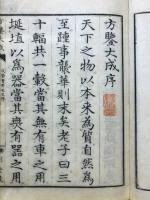 方鑒大成序
天下之物以本来為質自然為
至踵事襲華則末矣老子曰三
十輻共一轂當其無有車之用
埏埴以為器當其無有器之用